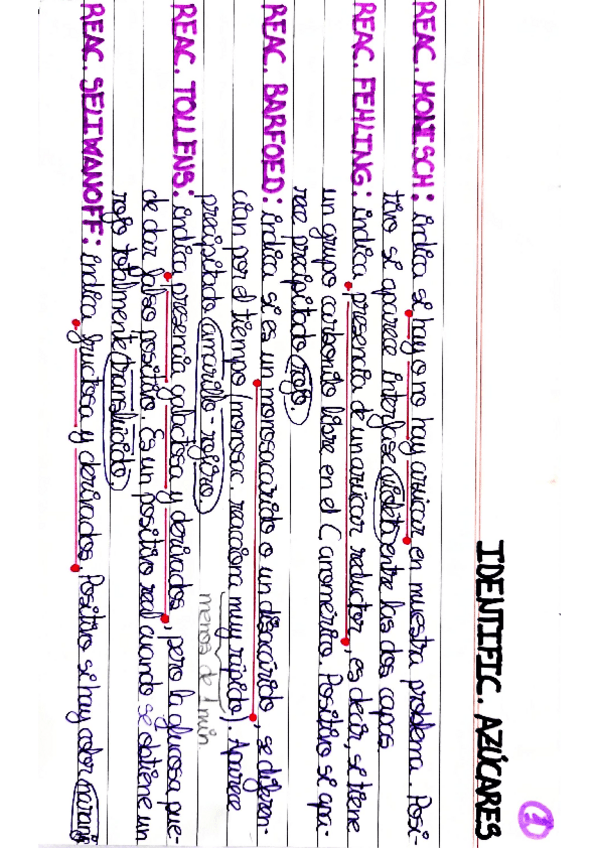 1
IDENTIFIC. AZÚCARES
REAC. MOLISCH: indica si hay o no hay azúcar en muestra problema. Posi-
tivo si aparece interfase violeta entre las dos capas.
REAC. FEHLING: indica presencia de un azúcar reductor, es decir, si tiene
un grupo carbonilo libre en el C anomérico. Positivo si apa-
rece precipitado rojo.
REAC. BARFOED: indica si es un monosacárido o un disacárido, se diferen-
cian por el tiempo (monosac. reacciona muy rápido). Aparece
menos de 1 min
precipitado amarillo-rojizo.
REAC. TOLLENS: indica presencia galactosa y derivados, pero la glucosa pue-
de dar falso positivo. Es un positivo real cuando se obtiene un
rojo totalmente translúcido.
REAC. SELIWANOFF: indica fructosa y derivados. Positivo si hay color naranj